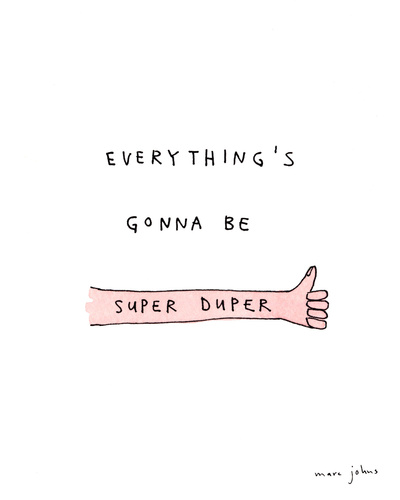 EVERYTHING'S
GONNA BE
SUPER DUPER
marc johns